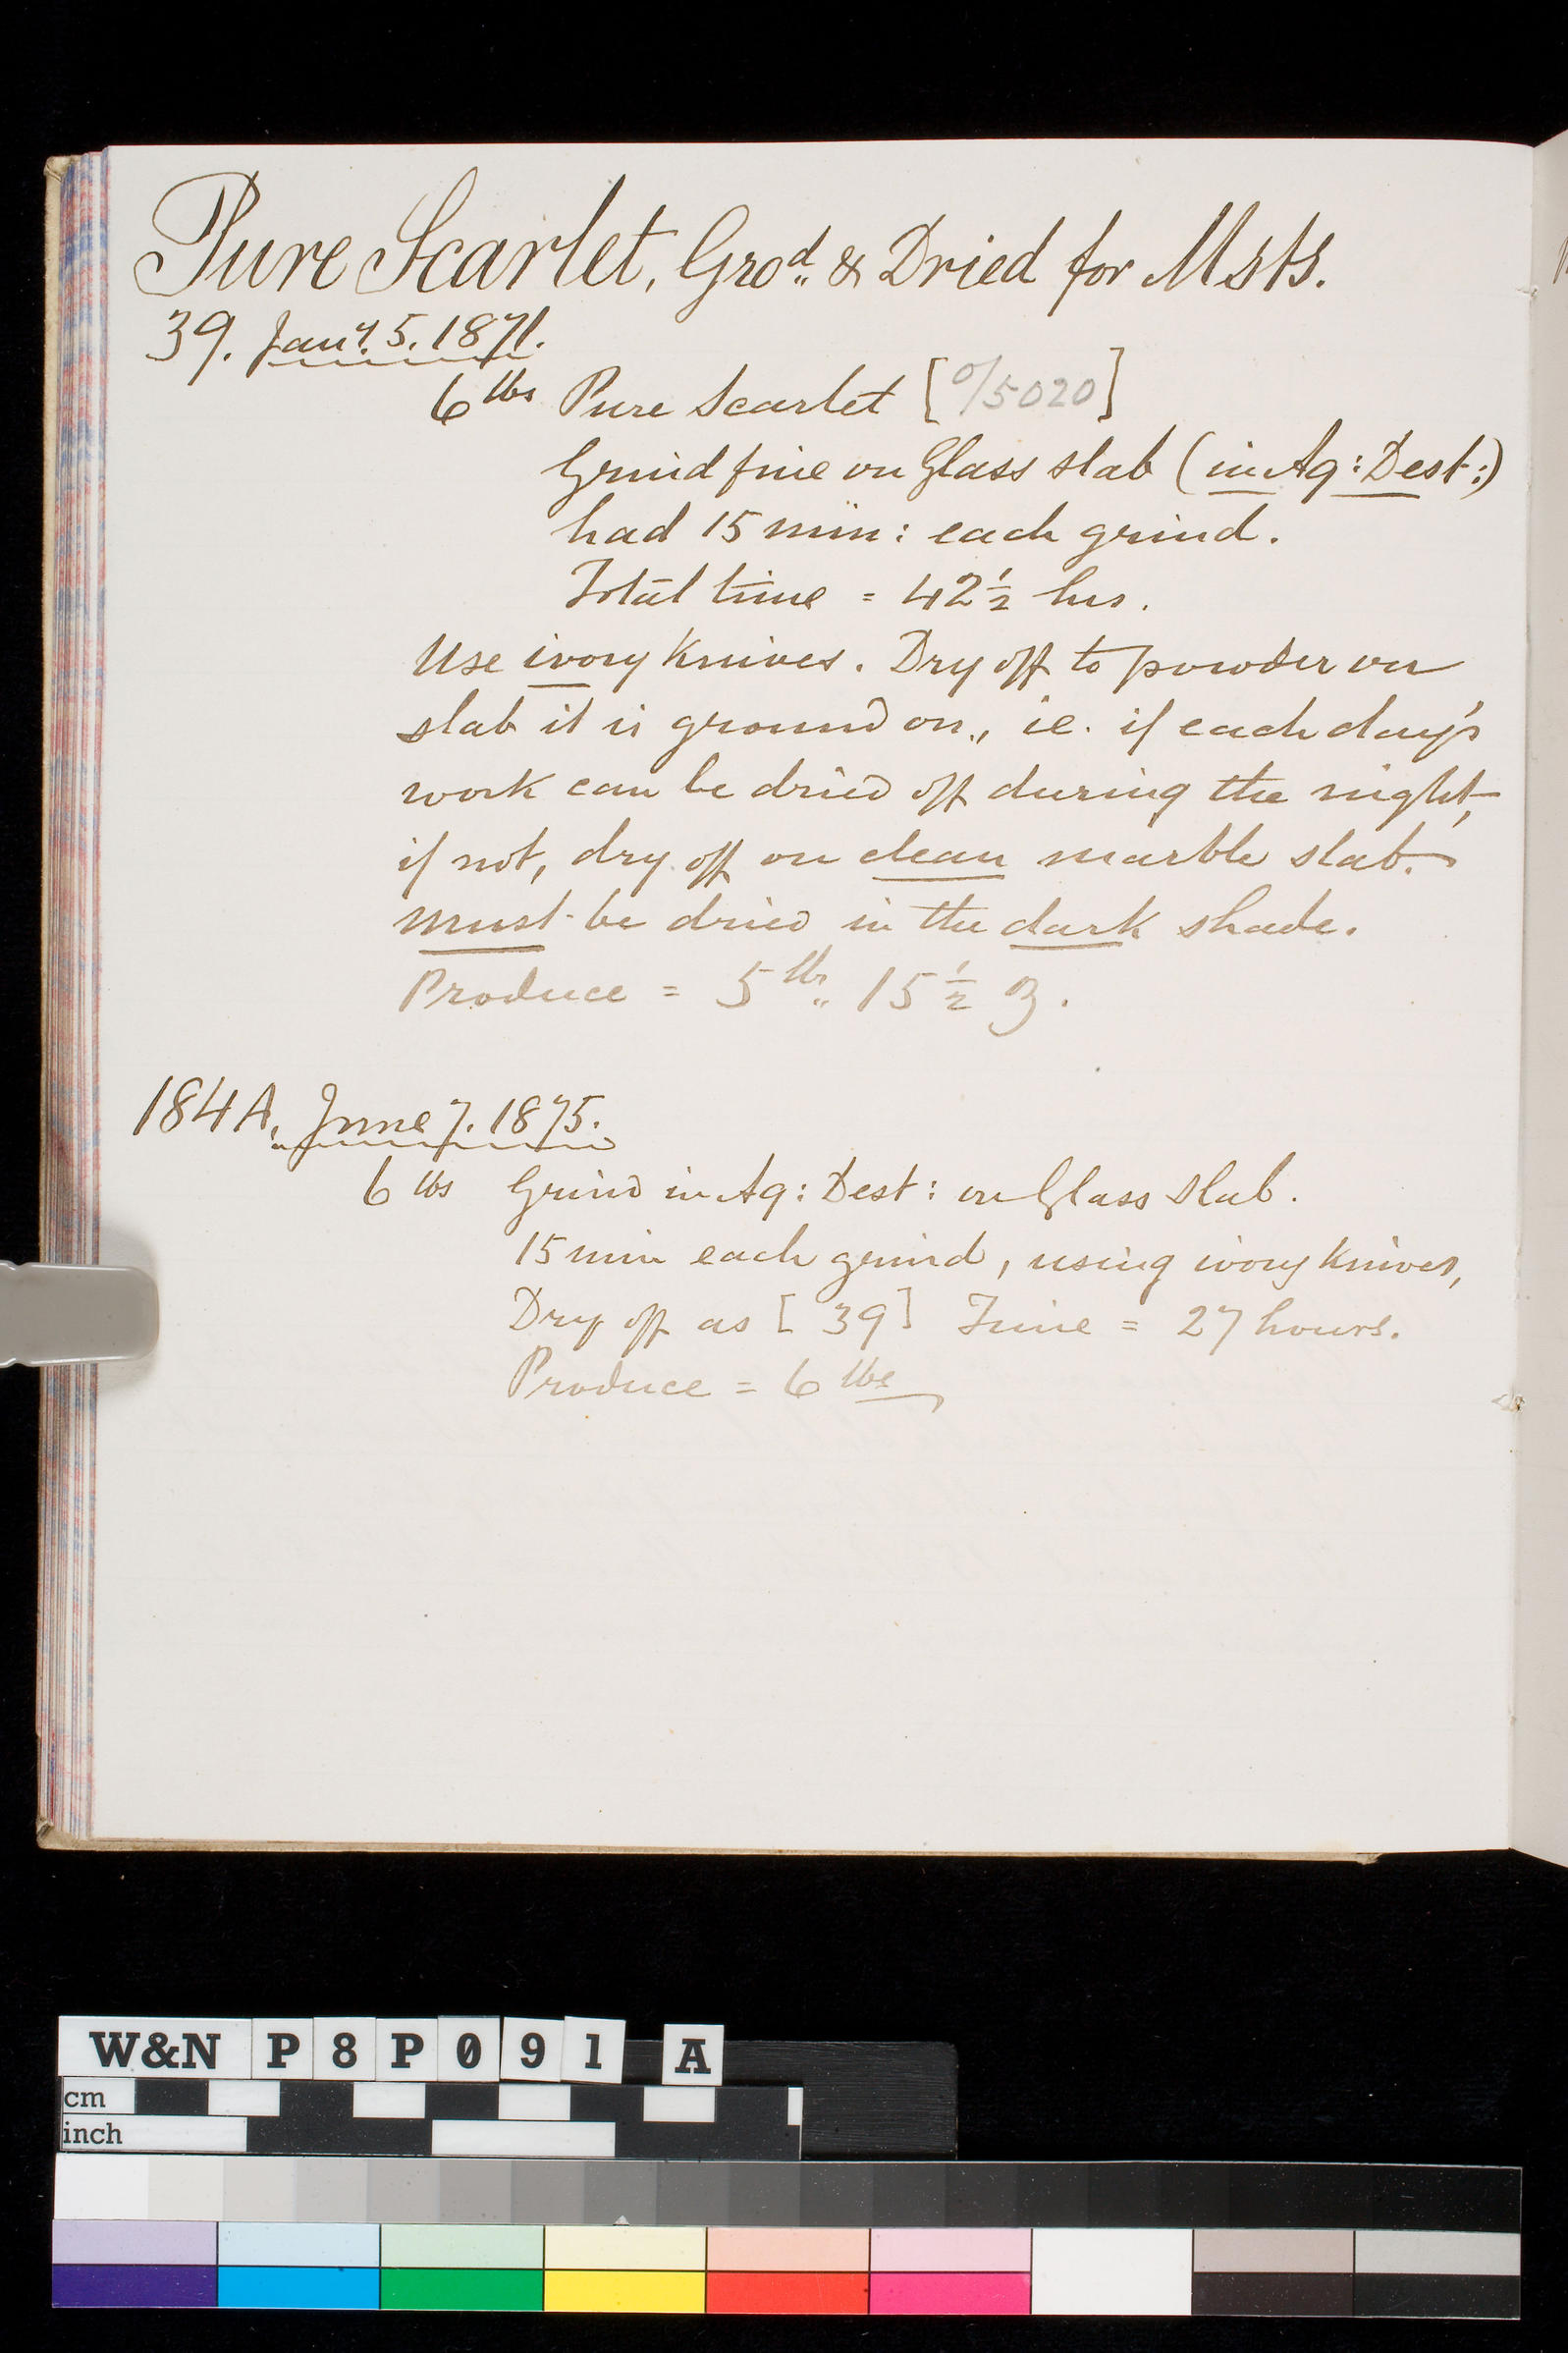 Pure Scarlet, Gro^d. & Dried for Msts.
39. Jan^y. 5. 1871.
6 lbs Pure Scarlet [O/5020]
Grind fine on Glass slab (in Aq: Dest:)
had 15 min: each grind.
Total time = 42½ hrs.
Use ivory Knives. Dry off to powder on
slab it is ground on, ie. if each day's
work can be dried off during the night,
if not, dry off on clean marble slab.
must be dried in the dark shade.
Produce = 5 lbs. 15½ ℥.
184A. June 7. 1875.
6 lbs Grind in Aq: Dest: on Glass Slab.
15 min each grind, using ivory Knives,
Dry off as [39] Time = 27 hours.
Produce = 6 lbs
W&N P8P091 A
cm
inch